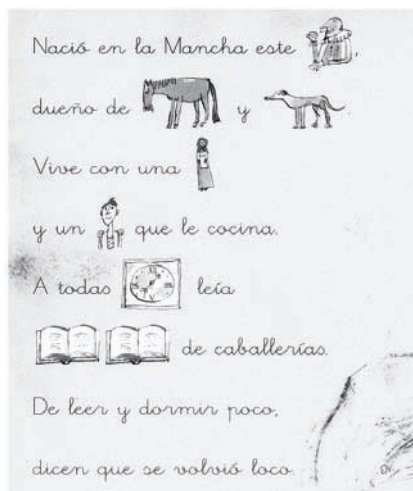 Nació en la Mancha este ,
dueño de y .
Vive con una
y un que le cocina.
A todas leía
de caballerías.
De leer y dormir poco,
dicen que se volvió loco